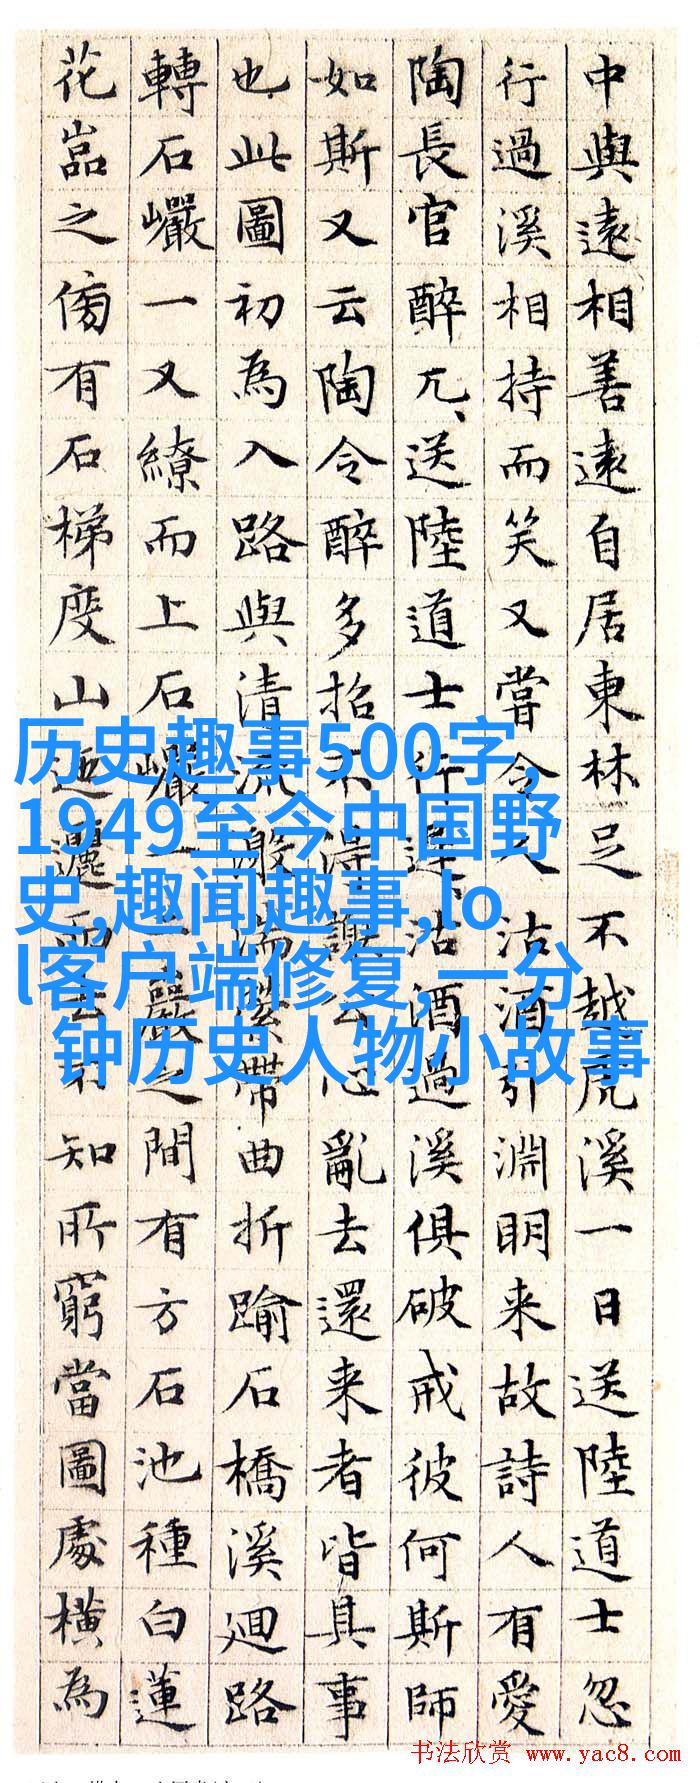 中與遠相善遠自居東林足不越虎溪一日送陸道士忽
行過溪相持而笑又嘗令人沽酒引淵明来故詩人有愛
陶長官醉兀、送陸道士行遲、沽酒過溪俱破戒彼何斯師
如斯又云陶令醉多招不得謝公心亂去還来者皆具事
也此圖初為入路與清流激湍縈帶曲折踰石橋溪迴路
轉石巗一又繚而上石巗巖之間有方石池種白蓮
花嵓之傍有石梯度山迤邐而去不知所窮當圖處横為
历史趣事500字,
1949至今中国野
史,趣闻趣事,lo
l客户端修复,一分
钟历史人物小故事
书法欣赏 www.yac8.com